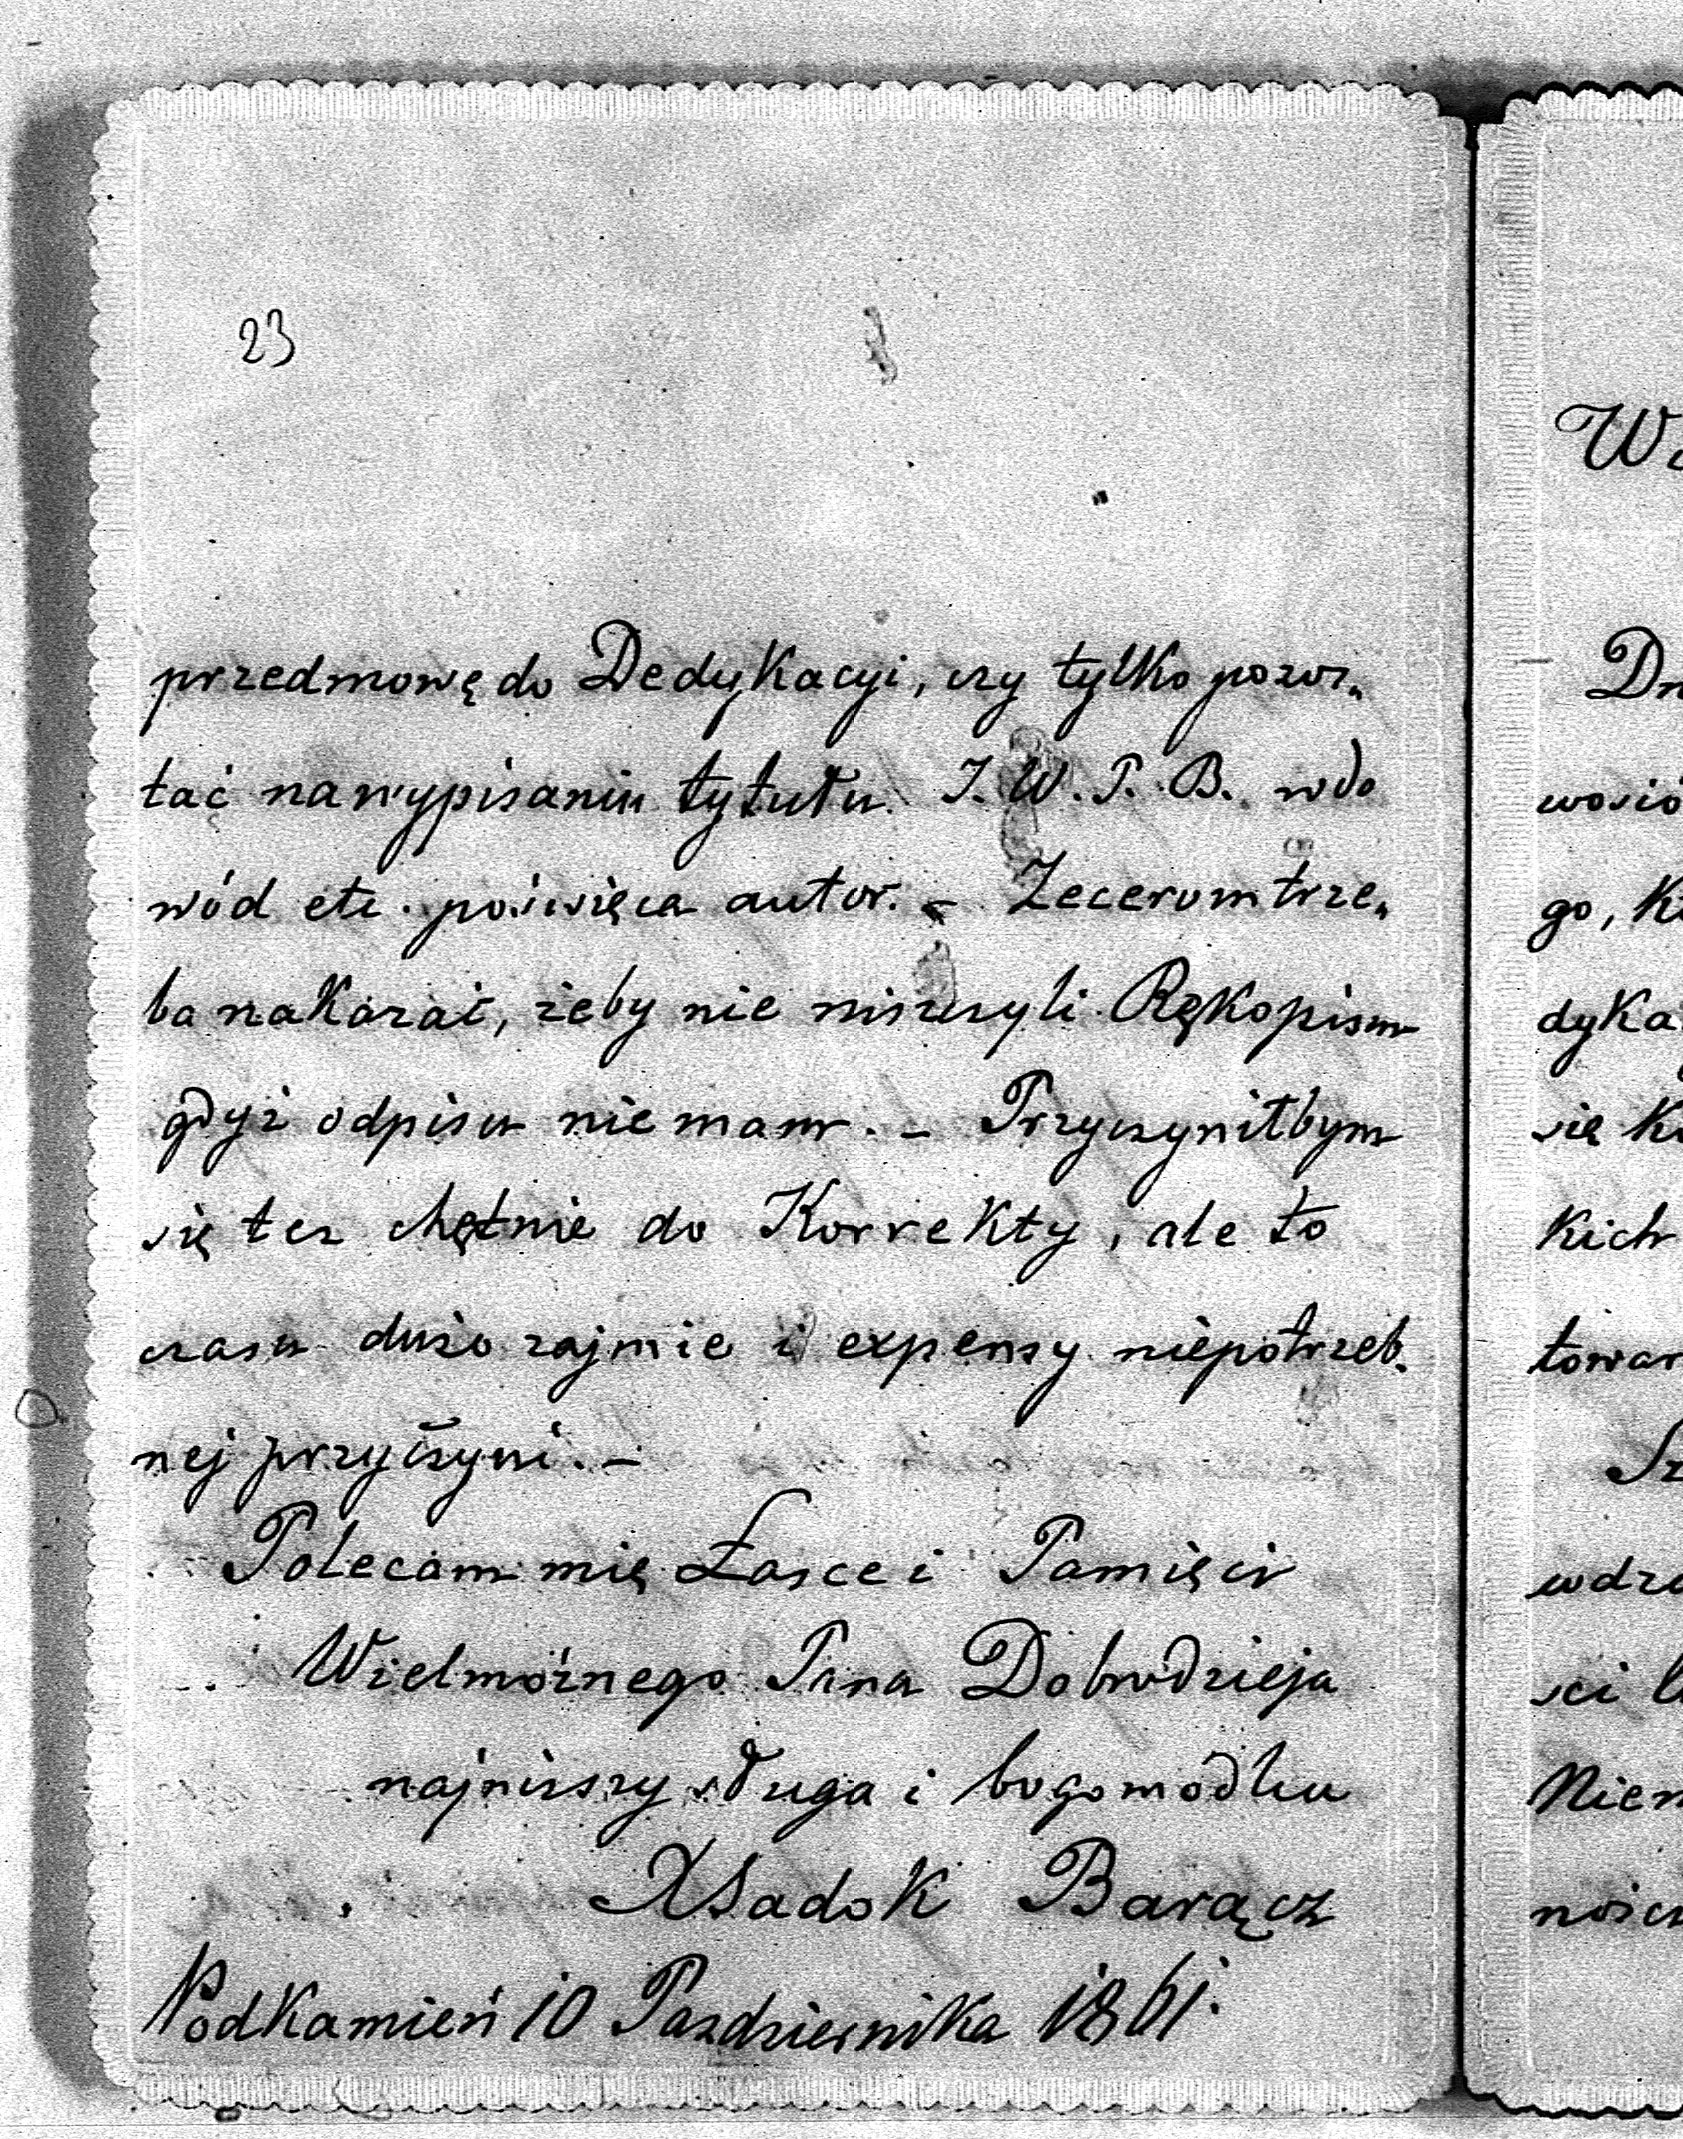 23
przedmowę do Dedykacyi, czy tylko pozos„
tać na wypisaniu tytułu J. W. P. B. w do
wód etc. poświęca autor. – Zecerom trze„
ba nakazać, żeby nie niszczyli Rękopism
gdyż odpisu nie mam. – Przyczyniłbym
się też chętnie do Korrekty, ale to
czasu dużo zajmie i expensy niepotrzeb„
nej przyczyni. –
Polecam mię Łasce i Pamięci
Wielmożnego Pana Dobrodzieja
najniższy sługa i bogomódlca
XSadok Barącz
Podkamień 10 Pazdziernika 1861.